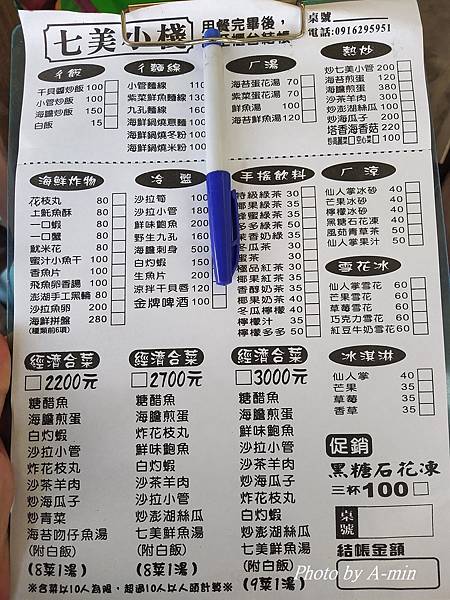 七美小棧
用餐完畢後，
桌號
電話:0916295951
ㄔ飯
干貝醬炒飯 100
小管炒飯 100
海膽炒飯 150
白飯 15
ㄔ麵線
小管麵線 110
紫菜鮮魚麵線 130
九孔麵線
海鮮鍋燒意麵
海鮮鍋燒冬粉
海鮮鍋燒米粉
ㄏ湯
海苔蛋花湯 70
紫菜蛋花湯 70
鮮魚湯 100
海苔鮮魚湯 120
熱炒
炒七美小管 200
海苔煎蛋 120
海膽煎蛋 380
沙茶羊肉 100
炒澎湖絲瓜 100
炒海瓜子 200
塔香海香菇 220
海鮮炸物
花枝丸 80
土魠魚酥 80
一口蝦 80
一口蟹 80
魷米花 80
蜜汁小魚干 100
香魚片 100
飛魚卵香腸 100
澎湖手工黑輪 80
沙拉魚卵 200
海鮮拼盤 280
(種類前6項)
冷盤
沙拉筍 100
沙拉小管 180
鮮味鮑魚 200
野生九孔 160
海膽刺身 500
白灼蝦 150
生魚片 200
涼拌干貝唇 120
金牌啤酒 100
手搖飲料
特級綠茶 30
椰果綠茶 35
蜂蜜綠茶 35
多多綠茶 50
茉香奶綠 35
冬瓜茶 30
蜜茶 30
極品紅茶 30
椰果紅茶 35
香醇奶茶 35
椰果奶茶 40
冬瓜檸檬 40
檸檬汁 35
檸檬多多 50
ㄏ涼
仙人掌冰砂 40
芒果冰砂 40
檸檬冰砂 40
黑糖石花凍 40
風茹青草茶 30
仙人掌果汁 40
雪花冰
仙人掌雪花 60
芒果雪花 60
草莓雪花 60
巧克力雪花 60
紅豆牛奶雪花 60
冰淇淋
仙人掌 35
芒果 35
草莓 35
香草 35
經濟合菜
□2200元
糖醋魚
海膽煎蛋
白灼蝦
沙拉小管
炸花枝丸
沙茶羊肉
炒海瓜子
炒青菜
海苔吻仔魚湯
(附白飯)
(8菜1湯)
經濟合菜
□2700元
糖醋魚
海膽煎蛋
炸花枝丸
鮮味鮑魚
白灼蝦
沙茶羊肉
沙拉小管
炒澎湖絲瓜
七美鮮魚湯
(附白飯)
(8菜1湯)
經濟合菜
□3000元
糖醋魚
海膽煎蛋
鮮味鮑魚
沙拉小管
沙茶羊肉
炒海瓜子
炸花枝丸
白灼蝦
炒澎湖絲瓜
七美鮮魚湯
(附白飯)
(9菜1湯)
促銷
黑糖石花凍
三杯100□
桌號
結帳金額
※合菜以10人為限，超過10人以人頭計算※
Photo by A-min